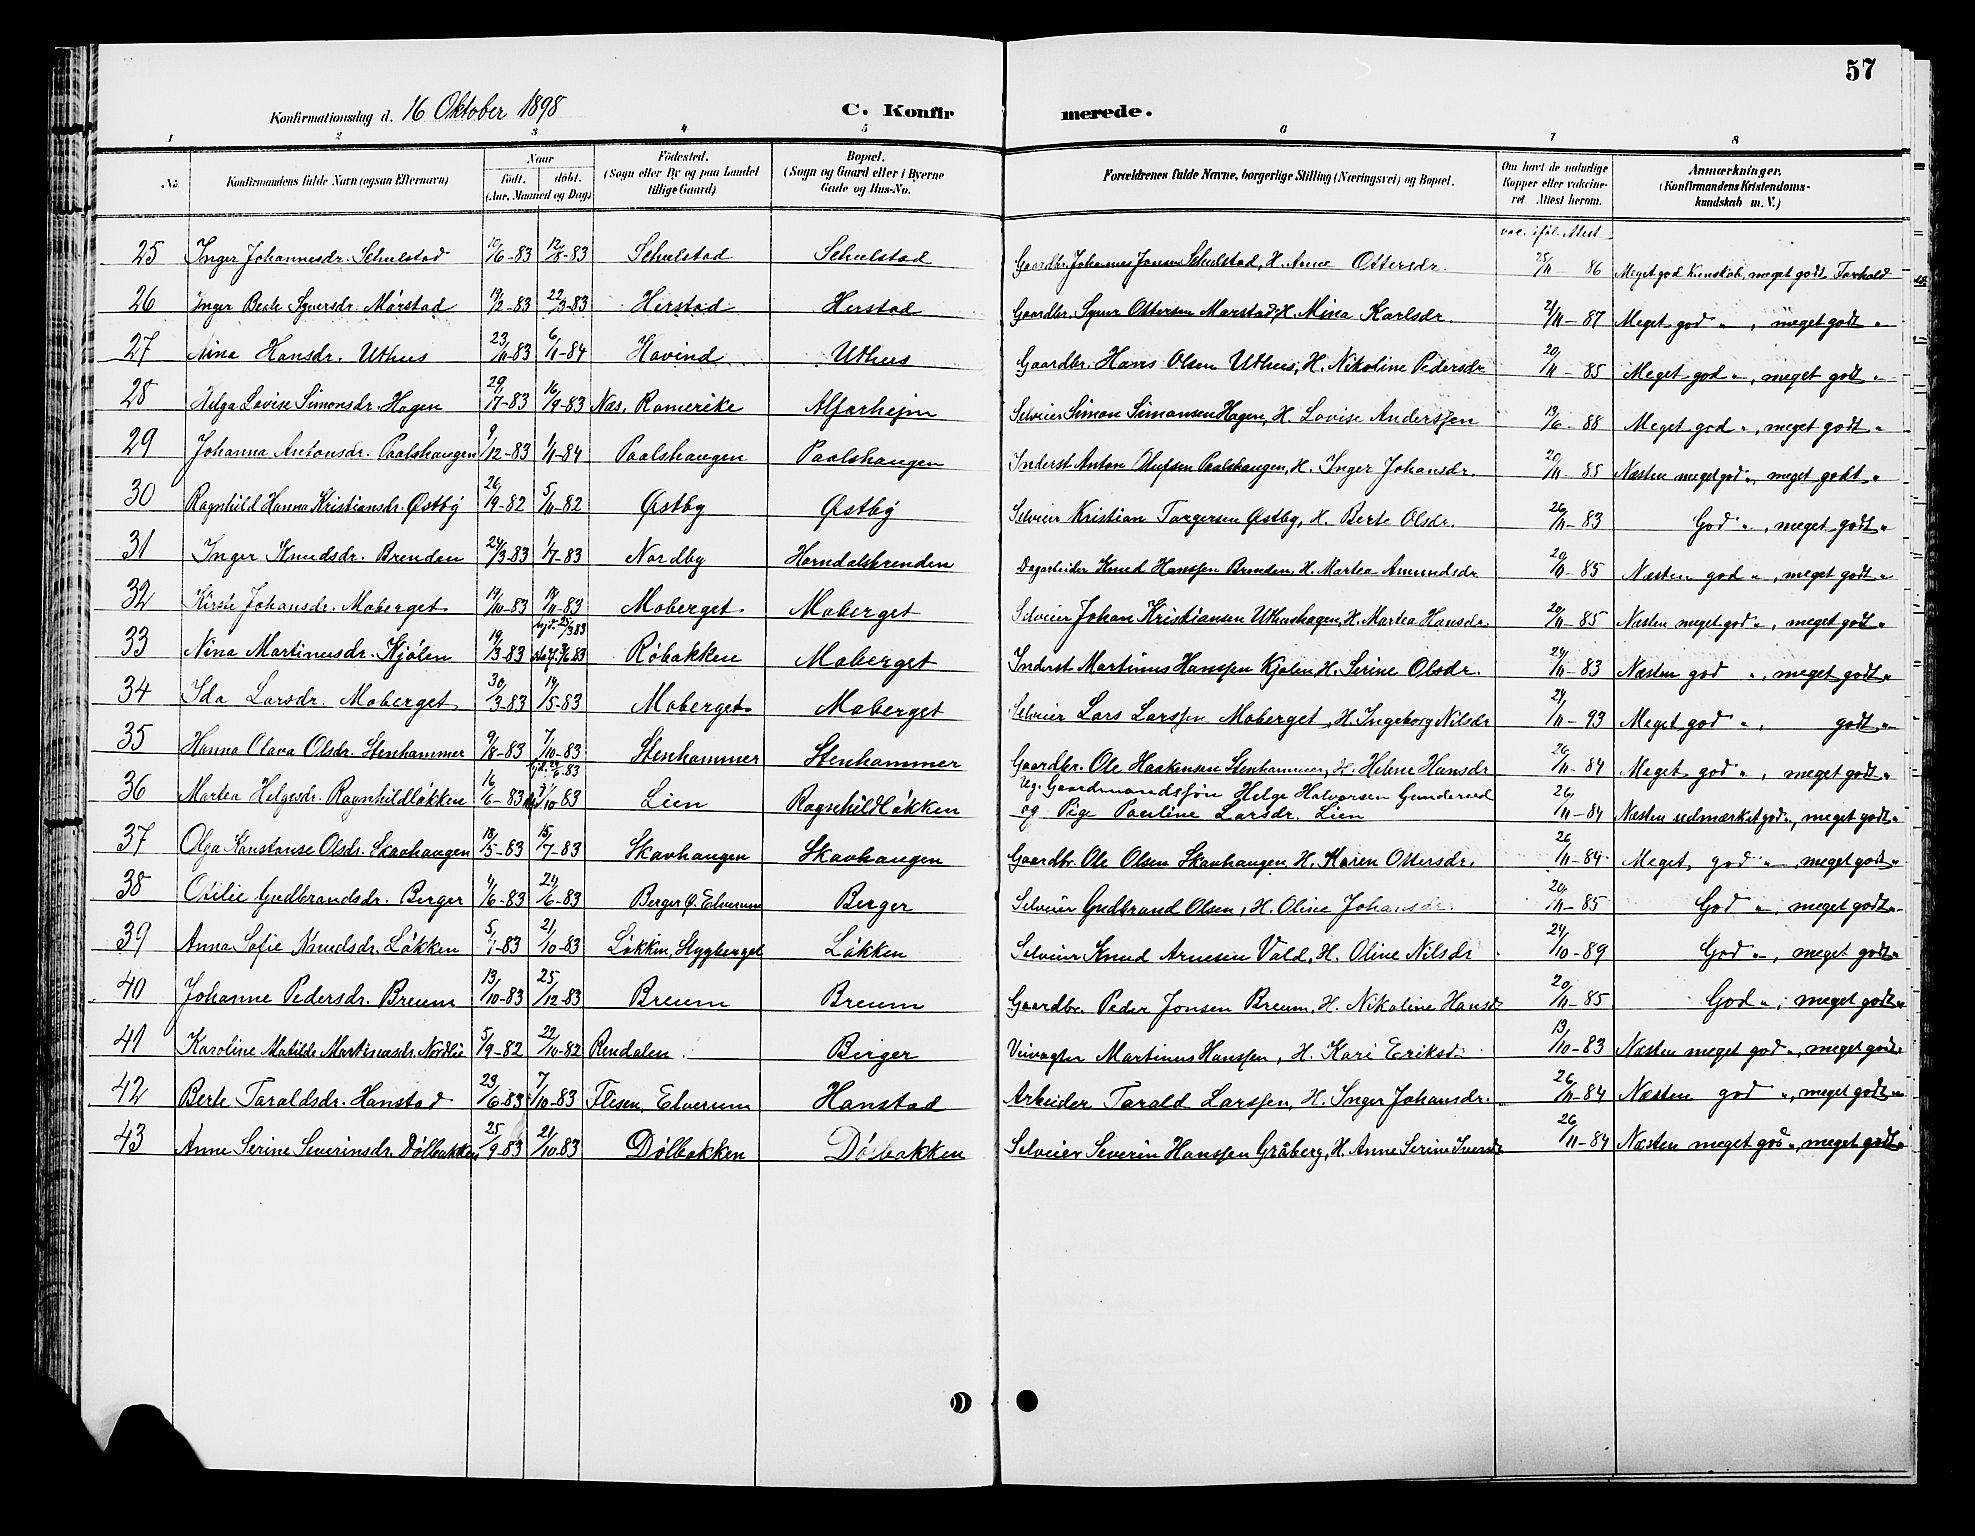 57
Konfirmationsdag d. 16 Oktober 1898 C. Konfir merede.
1 2 3 4 5 6 7 8
No. Konfirmandens fulde Navn (ogsaa Efternavn) Naar født. døbt. (Aar, Maaned og Dag) Födested. (Sogn eller By og paa Landet tillige Gaard) Bopæl. (Sogn og Gaard eller i Byerne Gade og Hus-No. Forældrenes fulde Navne, borgerlige Stilling (Næringsvei) og Bopæl. Om havt de naturlige Kopper eller vaccineret. Attest herom. Anmærkninger. (Konfirmandens Kristendomskundskab m. V.)
vac. iføl. Attest
25 Inger Johannesdr. Schulstad 10/6-83 12/8-83 Schulstad Schulstad Gaardbr. Johannes Jonsen Schulstad, H. Anne Ottersdr. 25/11 - 86 Meget god Kunskab, meget godt Forhold
26 Inger Berte Syversdr. Mørstad 19/2-83 22/3-83 Herstad Herstad Gaardbr. Syver Ottersen Mørstad, H. Mina Karlsdr. 21/11 - 87 Meget god ", meget godt "
27 Nina Hansdr. Uthus 23/11-83 6/1-84 Havind Uthus Gaardbr. Hans Olsen Uthus, H. Nikoline Pedersdr 20/11 - 85 Meget god ", meget godt "
28 Helga Lovise Simonsdr. Hagen 29/7-83 16/9-83 Næs, Romerike Alfarhejm Selveier Simon Simonsen Hagen, H. Lovise Anderssen 13/6 - 88 Meget god ", meget godt "
29 Johanna Antonsdr. Paalshaugen 9/12-83 1/1-84 Paalshaugen Paalshaugen Inderst Anton Olufsen Paalshaugen, H. Inger Johansdr. 20/11 - 85 Næsten meget god ", meget godt "
30 Ragnhild Hanna Kristiansdr. Østby 26/9-82 5/11-82 Østby Østby Selveier Kristian Torgersen Østby, H. Berte Olsdr. 26/11 - 83 God ", meget godt "
31 Inger Knudsdr. Brenden 24/3-83 1/7-83 Nordby Horndalsbrenden Dagarbeider Knud Hanssen Brenden, H. Martea Amundsdr 20/11 - 85 Næsten god ", meget godt "
32 Kirste Johansdr. Moberget 14/10-83 18/11-83 Moberget Moberget Selveier Johan Kristiansen Uthushagen, H. Martea Hansdr. 20/11 - 85 Næsten meget god ", meget godt "
33 Nina Martinusdr. Kjølen 19/3-83 hjd. 25/3 83 Røbakken Moberget Inderst Martinus Hanssen Kjølen, H. Serine Olsdr. 24/11 - 83 Næsten god ", meget godt "
34 Ida Larsdr. Moberget 30/3-83 14/5-83 Moberget Moberget Selveier Lars Larssen Moberget, H. Ingeborg Nilsdr 24/11 - 93 Meget god ", godt "
35 Hanna Olava Olsdr. Stenhammer 9/8-83 7/10-83 Stenhammer Stenhammer Gaardbr. Ole Haakensen Stenhammer, H. Helene Hansdr 26/11 - 84 Meget god ", meget godt "
36 Martea Helgesdr. Ragnhildløkken 16/6-83 7/10-83 Lien Ragnhildløkken Ug. Gaardmandssøn Helge Halvorsen Gundersud
og Pige Pauline Larsdr. Lien 26/11 - 84 Næsten udmærket god ", meget godt "
37 Olga Konstanse Olsdr. Skavhaugen 18/5-83 15/7-83 Skavhaugen Skavhaugen Gaardbr. Ole Olsen Skavhaugen, H. Karen Ottersdr. 26/11 - 84 Meget god ", meget godt "
38 Otilie Gudbrandsdr. Berger 4/6-83 24/6-83 Berger Ø. Elverum Berger Selveier Gudbrand Olsen, H. Oline Johansdr. 20/11 - 85 God ", meget godt "
39 Anna Sofie Knudsdr. Løkken 5/7-83 21/10-83 Løkken, Stygberget Løkken Selveier Knud Arnesen Vold, H. Oline Nilsdr 24/10 - 89 God ", meget godt "
40 Johanne Pedersdr. Breum 13/10-83 25/12-83 Breum Breum Gaardbr. Peder Jonsen Breum, H. Nikoline Hansd. 20/11 - 85 God ", meget godt "
41 Karoline Matilde Martinusdr. Nordlie 5/9-82 22/10-82 Rendalen Berger Veivogter Martinus Hanssen, H. Kari Eriksd. 13/10 - 83 Næsten meget god ", meget godt "
42 Berte Taraldsdr. Hanstad 23/6-83 7/10-83 Flisen, Elverum Hanstad Arbeider Tarald Larssen, H. Inger Johansdr. 26/11 - 84 Næsten god ", meget godt "
43 Anne Serine Severinsdr. Dølbakken 25/9-83 21/10-83 Dølbakken Dølbakken Selveier Severin Hanssen Gråberg, H. Anne Serine Iversd. 26/11 - 84 Næsten meget god ", meget godt "